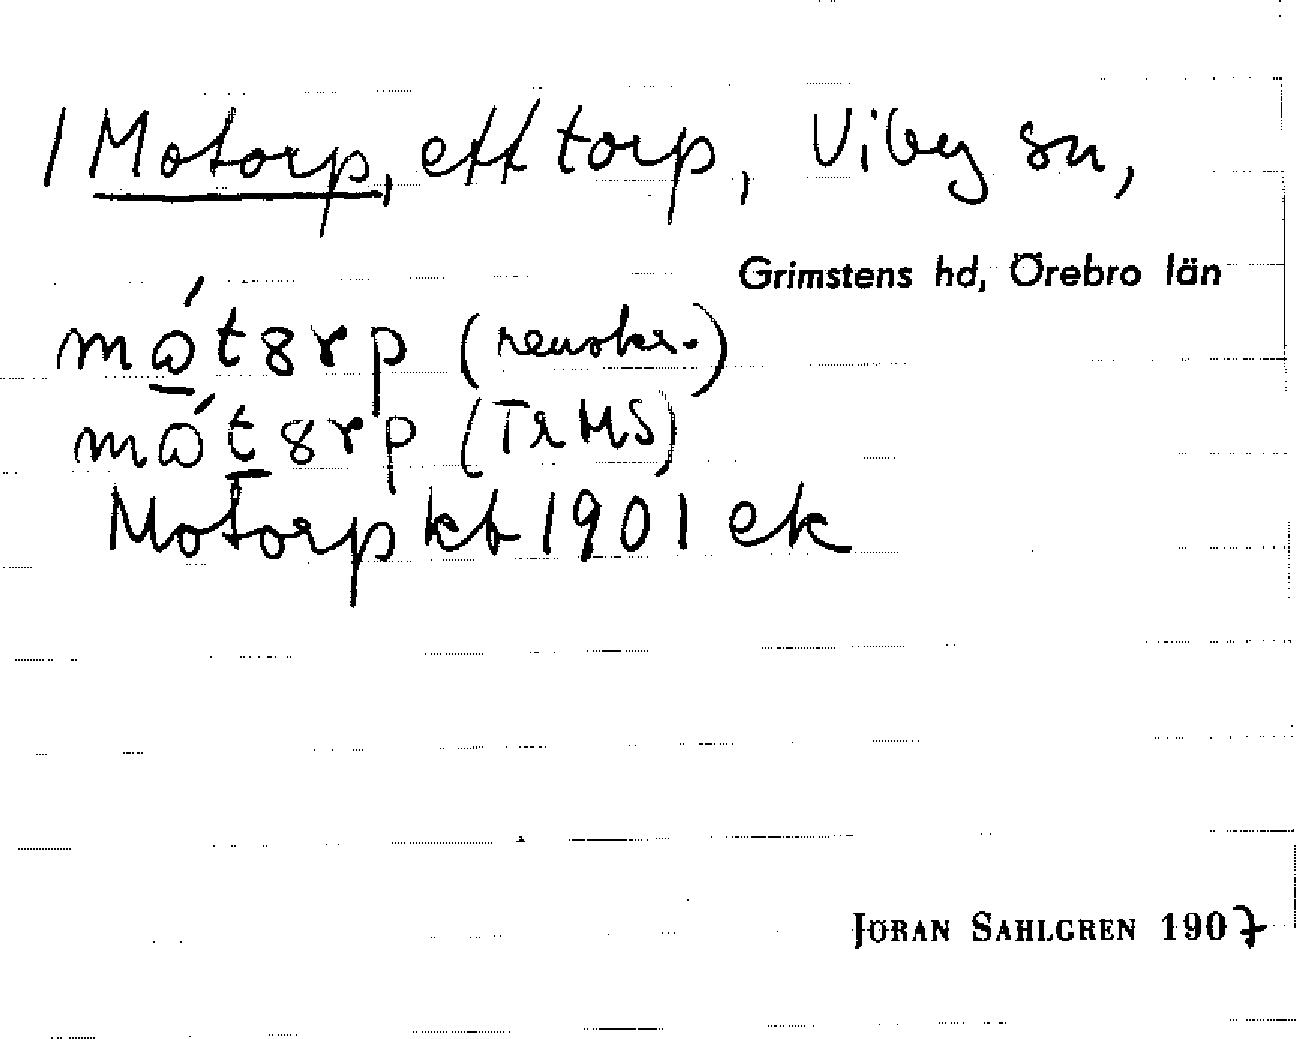 / Motorp, ett torp, Viby sn,
Grimstens hd, Örebro län
mώt8rp (renskr.)
mώt8rp (TrMS)
Motorp kb 1901 ek
JÖRAN SAHLGREN 1907